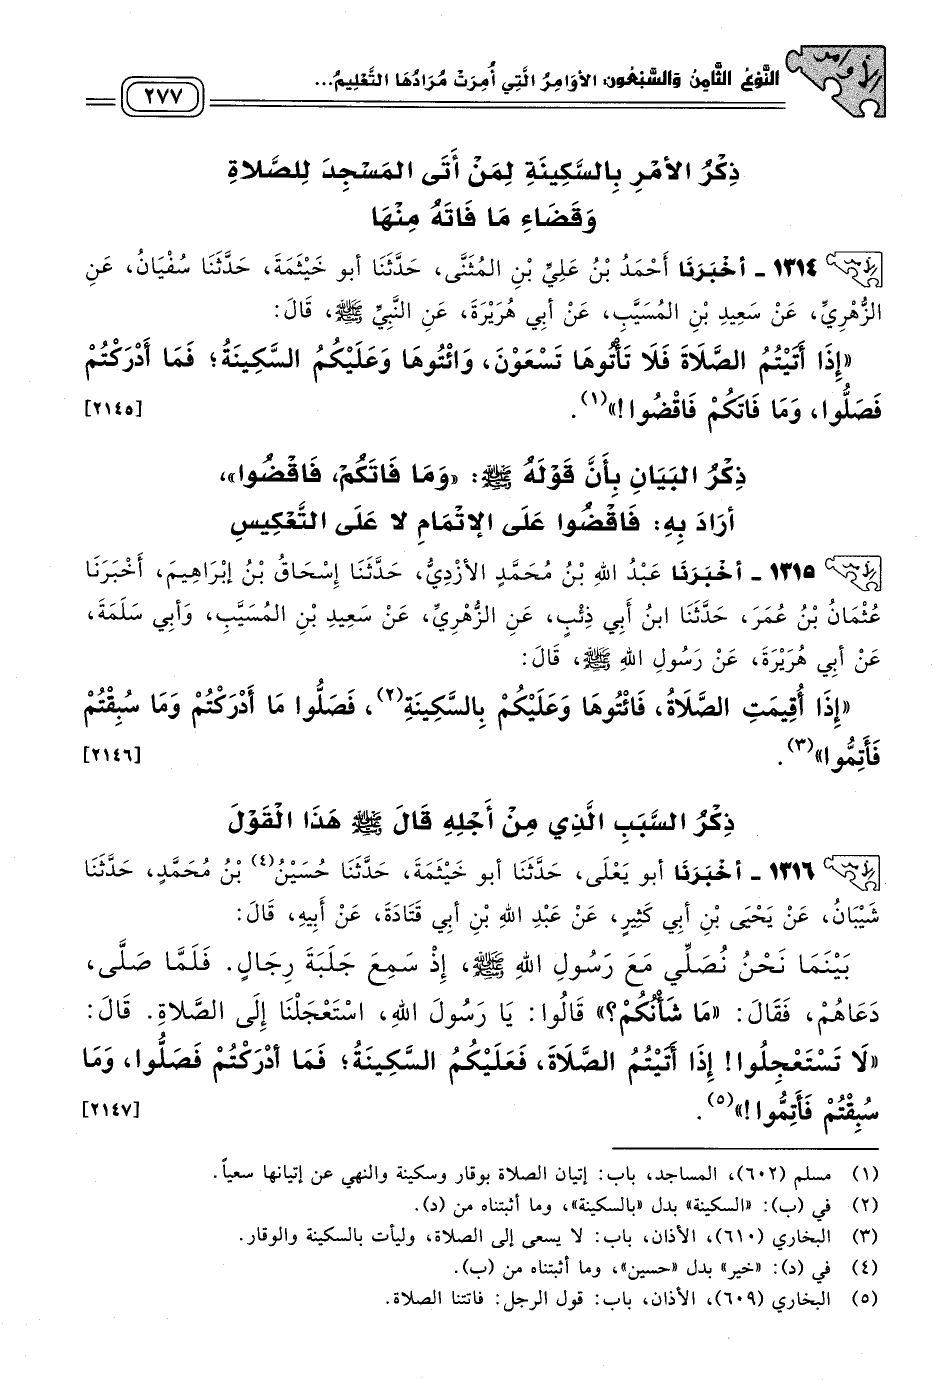 الأوامر
النَّوْعُ الثَّامِنُ وَالسَّبْعُونَ: الأَوَامِرُ الَّتِي أُمِرَتْ مُرَادُهَا التَّعْلِيمُ...
٢٧٧
ذِكْرُ الأَمْرِ بِالسَّكِينَةِ لِمَنْ أَتَى المَسْجِدَ لِلصَّلَاةِ
وَقَضَاءِ مَا فَاتَهُ مِنْهَا
١٣١٤ ـ أَخْبَرَنَا أَحْمَدُ بْنُ عَلِيِّ بْنِ المُثَنَّى، حَدَّثَنَا أبو خَيْثَمَةَ، حَدَّثَنَا سُفْيَانُ، عَنِ
الزُّهْرِيِّ، عَنْ سَعِيدِ بْنِ المُسَيَّبِ، عَنْ أبي هُرَيْرَةَ، عَنِ النَّبِيِّ ﷺ، قَالَ:
«إِذَا أَتَيْتُمُ الصَّلَاةَ فَلَا تَأْتُوهَا تَسْعَوْنَ، وَائْتُوهَا وَعَلَيْكُمُ السَّكِينَةُ؛ فَمَا أَدْرَكْتُمْ
فَصَلُّوا، وَمَا فَاتَكُمْ فَاقْضُوا!»(١). [٢١٤٥]
ذِكْرُ البَيَانِ بِأَنَّ قَوْلَهُ ﷺ: «وَمَا فَاتَكُمْ، فَاقْضُوا»،
أرَادَ بِهِ: فَاقْضُوا عَلَى الإتْمَامِ لا عَلَى التَّعْكِيسِ
١٣١٥ ـ أَخْبَرَنَا عَبْدُ اللهِ بْنُ مُحَمَّدٍ الأزْدِيُّ، حَدَّثَنَا إِسْحَاقُ بْنُ إبْرَاهِيمَ، أَخْبَرَنَا
عُثْمَانُ بْنُ عُمَرَ، حَدَّثَنَا ابنُ أبي ذِئْبٍ، عَنِ الزُّهْرِيِّ، عَنْ سَعِيدِ بْنِ المُسَيَّبِ، وَأبي سَلَمَةَ،
عَنْ أبي هُرَيْرَةَ، عَنْ رَسُولِ اللهِ ﷺ، قَالَ:
«إِذَا أُقِيمَتِ الصَّلَاةُ، فَائْتُوهَا وَعَلَيْكُمْ بِالسَّكِينَةِ(٢)، فَصَلُّوا مَا أَدْرَكْتُمْ وَمَا سُبِقْتُمْ
فَأَتِمُّوا»(٣). [٢١٤٦]
ذِكْرُ السَّبَبِ الَّذِي مِنْ أَجْلِهِ قَالَ ﷺ هَذَا القَوْلَ
١٣١٦ ـ أَخْبَرَنَا أبو يَعْلَى، حَدَّثَنَا أبو خَيْثَمَةَ، حَدَّثَنَا حُسَيْنُ(٤) بْنُ مُحَمَّدٍ، حَدَّثَنَا
شَيْبَانُ، عَنْ يَحْيَى بْنِ أبي كَثِيرٍ، عَنْ عَبْدِ اللهِ بْنِ أبي قَتَادَةَ، عَنْ أَبِيهِ، قَالَ:
بَيْنَمَا نَحْنُ نُصَلِّي مَعَ رَسُولِ اللهِ ﷺ، إِذْ سَمِعَ جَلَبَةَ رِجَالٍ. فَلَمَّا صَلَّى،
دَعَاهُمْ، فَقَالَ: «مَا شَأْنُكُمْ؟» قَالُوا: يَا رَسُولَ اللهِ، اسْتَعْجَلْنَا إِلَى الصَّلَاةِ. قَالَ:
«لَا تَسْتَعْجِلُوا! إِذَا أَتَيْتُمُ الصَّلَاةَ، فَعَلَيْكُمُ السَّكِينَةُ؛ فَمَا أَدْرَكْتُمْ فَصَلُّوا، وَمَا
سُبِقْتُمْ فَأَتِمُّوا!»(٥). [٢١٤٧]
(١) مسلم (٦٠٢)، المساجد، باب: إتيان الصلاة بوقار وسكينة والنهي عن إتيانها سعياً.
(٢) في (ب): «السكينة» بدل «بالسكينة»، وما أثبتناه من (د).
(٣) البخاري (٦١٠)، الأذان، باب: لا يسعى إلى الصلاة، وليأت بالسكينة والوقار.
(٤) في (د): «خير» بدل «حسين»، وما أثبتناه من (ب).
(٥) البخاري (٦٠٩)، الأذان، باب: قول الرجل: فاتتنا الصلاة.